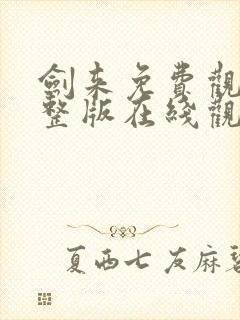 劍来免費觀
整版在綫觀
夏西七友麻